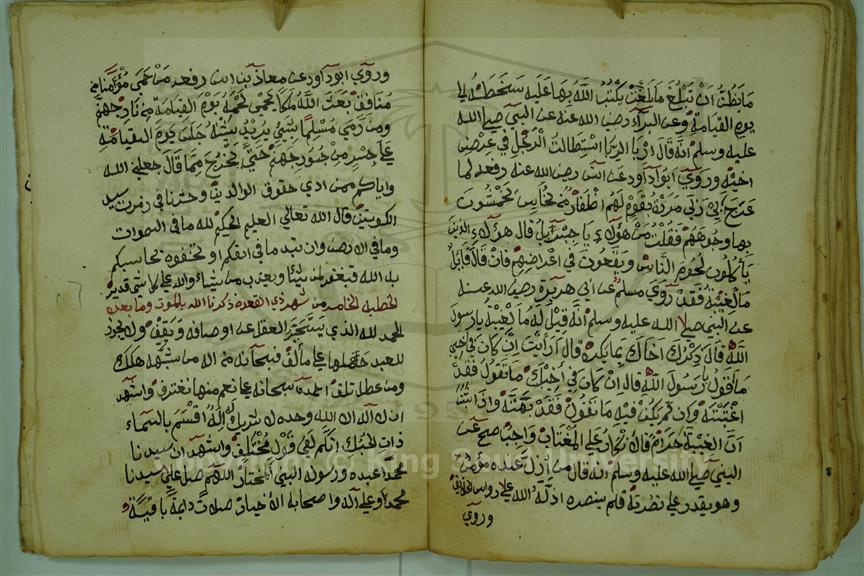 ما يظن ان تبلغ ما بلغت يكتب الله بها عليه سخطه الي
يوم القيامة وعن البرآء رضي الله عنه عن النبي صلي الله
عليه وسلم انه قال اربا الربا استطالت الرجل في عرض
اخيه وروي ابوا داود عن انس رضي الله عنه رفعه لما
عرج بي ربي مررت بقوم لهم اظفار من نحاس يخمشون
بها وجوههم فقلت من هؤلاء يا جبرآئيل قال هؤلاء الذين
يأكلون لحوم الناس ويقعون في اعراضهم فان قال قائل
ما الغيبة فقد روي مسلم عن ابي هريرة رضي الله عنه
عن النبي صلا الله عليه وسلم انه قيل له ما الغيبة يا رسول
الله قال ذكرك اخاك بما يكره قال ارأيت ان كان في اخي
ما اقول يا رسول الله قال ان كان في اخيك ما تقول فقد
اغتبته وان لم يكن فيه ما تقول فقد بهته واذا
ان الغيبة حرام فالانكار علي المغتاب واجب صح عن
النبي صلي الله عليه وسلم انه قال من اذل عنده مؤمن
وهو يقدر علي نصرته فلم ينصره اذله الله علي رؤس الخلائق
وروي
وروي ابو داود عن معاذ بن انس رفعه من حمي مؤمنا من
منافق بعث الله ملكا يحمي لحمه يوم القيامة من نار جهنم
ومن رمي مسلما بشئ يريد شينه حبس يوم القيامة
علي جسر من جسور جهنم حتي يخرج مما قال جعلني الله
واياكم ممن ادي حقوق الوالدين وحشرنا في زمرت سيد
الكونين قال الله تعالي العليم الحكيم لله ما في السموات
وما في الارض وان تبدوا ما في انفسكم او تخفوه يحاسبكم
به الله فيغفر لمن يشاء ويعذب من يشاء والله علي كل شئ قدير
الخطبة الخامسة من شهر ذي القعدة ذكرنا الله بالموت وما بعده
الحمد لله الذي يتحير العقل عن اوصافه ويقف ولا يجوز
للعبد حملها علي مألف فسبحانه من اله من شبهه هلك
ومن عطل تلف احمده سبحانه علي نعم منها نغترف واشهد
ان لا اله الا الله وحده لا شريك له اله اقسم بالسماء
ذات الحبك انكم لفي قول مختلف واشهد ان سيدنا
محمدا عبده ورسوله النبي المختار اللهم صل علي سيدنا
محمد وعلي آله واصحابه الاخيار صلات دايمة باقية